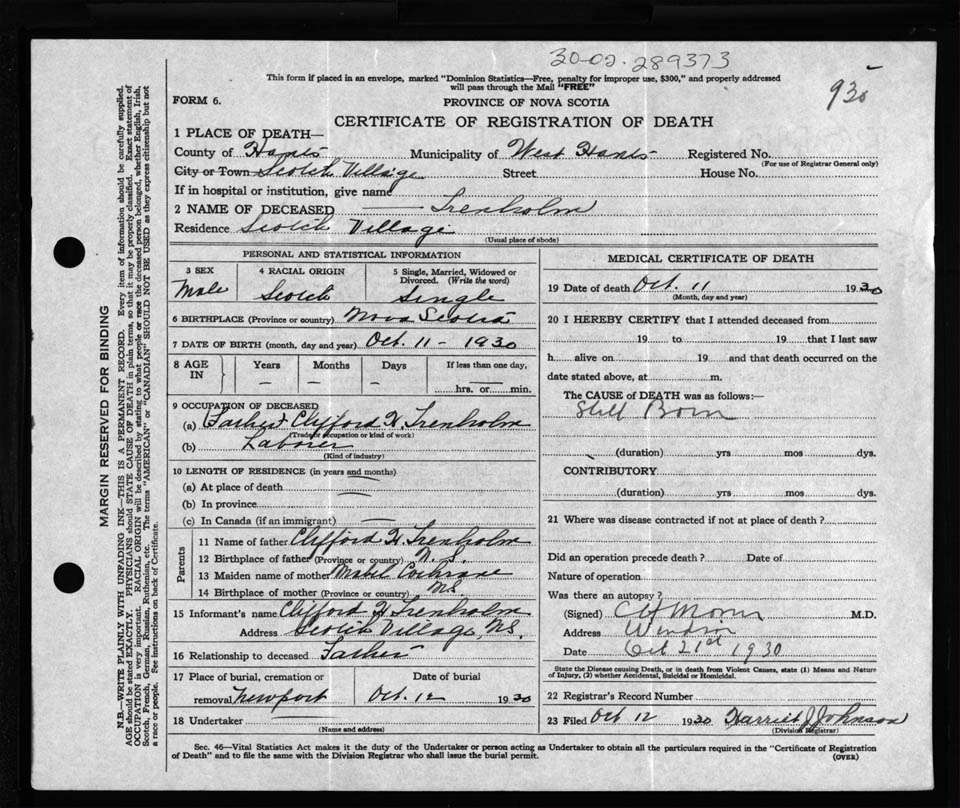 30-02-289373
This form if placed in an envelope, marked "Dominion Statistics—Free, penalty for improper use, $300," and properly addressed
will pass through the Mail "FREE"
930
FORM 6.
PROVINCE OF NOVA SCOTIA
CERTIFICATE OF REGISTRATION OF DEATH
1 PLACE OF DEATH—
County of Hants Municipality of West Hants Registered No.
(For use of Registrar General only)
City or Town Scotch Village Street House No.
If in hospital or institution, give name
2 NAME OF DECEASED — Trenholm
Residence Scotch Village
(Usual place of abode)
PERSONAL AND STATISTICAL INFORMATION
3 SEX 4 RACIAL ORIGIN 5 Single, Married, Widowed or
Divorced. (Write the word)
Male Scotch Single
6 BIRTHPLACE (Province or country) Nova Scotia
7 DATE OF BIRTH (month, day and year) Oct. 11 - 1930
8 AGE IN Years Months Days If less than one day,
— — — —
hrs. or min.
9 OCCUPATION OF DECEASED
(a) Father Clifford H. Trenholm
(Trade or occupation or kind of work)
(b) Laborer
(Kind of industry)
10 LENGTH OF RESIDENCE (in years and months)
(a) At place of death
(b) In province
(c) In Canada (if an immigrant) —
Parents
11 Name of father Clifford H. Trenholm
12 Birthplace of father (Province or country) N.S.
13 Maiden name of mother Mabel Cochrane
14 Birthplace of mother (Province or country) N.S.
15 Informant's name Clifford H. Trenholm
Address Scotch Village, N.S.
16 Relationship to deceased Father
17 Place of burial, cremation or Date of burial
removal Newport Oct. 12 1930
18 Undertaker
(Name and address)
MEDICAL CERTIFICATE OF DEATH
19 Date of death Oct. 11 1930
(Month, day and year)
20 I HEREBY CERTIFY that I attended deceased from
19 to 19 that I last saw
h alive on 19 and that death occurred on the
date stated above, at m.
The CAUSE of DEATH was as follows:—
Still Born
(duration) yrs mos dys.
CONTRIBUTORY
(duration) yrs mos dys.
21 Where was disease contracted if not at place of death?
Did an operation precede death? Date of
Nature of operation
Was there an autopsy?
(Signed) M.D.
Address Windsor
Date Oct 21st 1930
State the Disease causing Death, or in death from Violent Causes, state (1) Means and Nature
of Injury, (2) whether Accidental, Suicidal or Homicidal.
22 Registrar's Record Number
23 Filed Oct 12 1930 Harriet J Johnson
(Division Registrar)
Sec. 46—Vital Statistics Act makes it the duty of the Undertaker or person acting as Undertaker to obtain all the particulars required in the "Certificate of Registration
of Death" and to file the same with the Division Registrar who shall issue the burial permit.
(OVER)
MARGIN RESERVED FOR BINDING
N.B.—WRITE PLAINLY WITH UNFADING INK—THIS IS A PERMANENT RECORD. Every item of information should be carefully supplied.
AGE should be stated EXACTLY. PHYSICIANS should STATE CAUSE OF DEATH in plain terms, so that it may be properly classified. Exact statement of
OCCUPATION is very important. RACIAL ORIGIN will be described by stating to what people or race the deceased person belonged, whether English, Irish,
Scotch, French, German, Russian, Ruthenian, etc. The terms "AMERICAN" or "CANADIAN" SHOULD NOT BE USED as they express citizenship but not
a race or people. See instructions on back of Certificate.